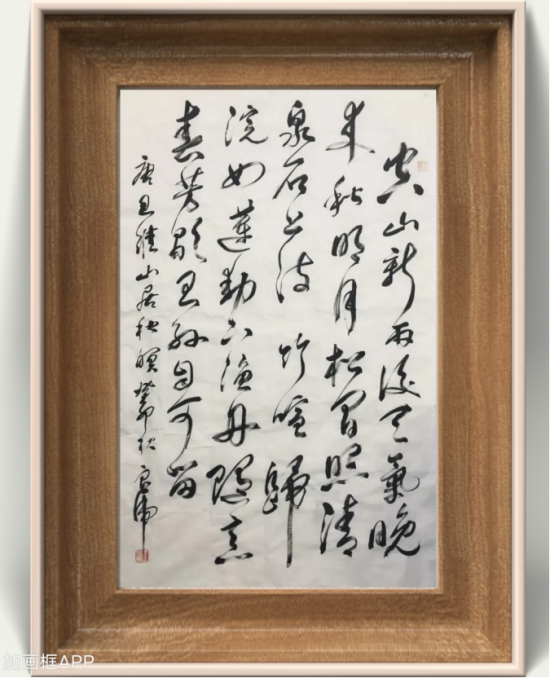 空山新雨後天氣晚
来秋明月松間照清
泉石上流竹喧歸
浣女蓮動下漁舟隨意
春芳歇王孫自可留
唐王維山居秋暝癸卯秋
加画框APP